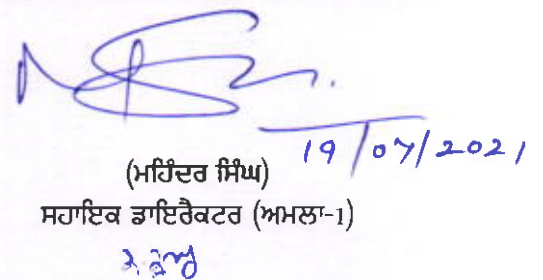 19/07/2021
(ਮਹਿੰਦਰ ਸਿੰਘ)
ਸਹਾਇਕ ਡਾਇਰੈਕਟਰ (ਅਮਲਾ-1)